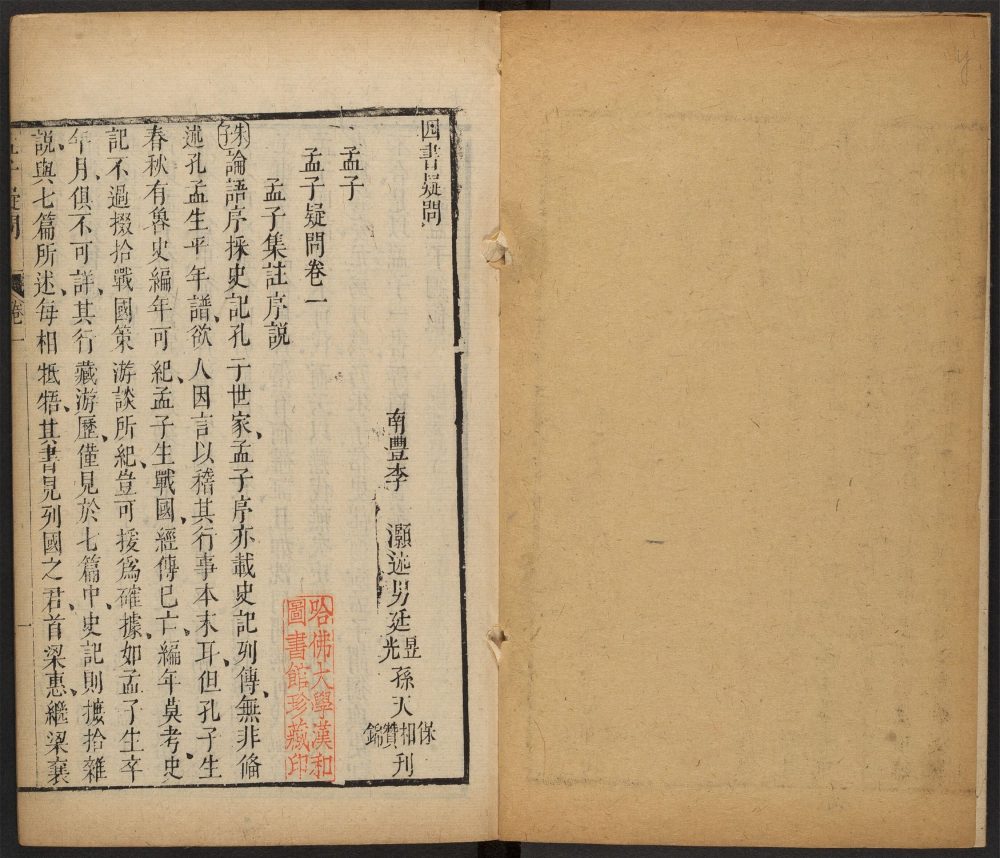 四書疑問
孟子
南豐李　灝述男延昱光孫天保相贊錦刊
孟子疑問卷一
孟子集註序説
朱子論語序採史記孔子世家孟子序亦載史記列傳無非備
述孔孟生平年譜欲人因言以稽其行事本末耳但孔子生
春秋有魯史編年可紀孟子生戰國經傳已亡編年莫考史
記不過掇拾戰國策游談所紀豈可援爲確據如孟子生卒
年月俱不可詳其行藏游歷僅見於七篇中史記則摭拾雜
説與七篇所述每相牴牾其書見列國之君首梁惠繼梁襄
孟子疑問
卷一
一
哈佛大學漢和
圖書館珍藏印